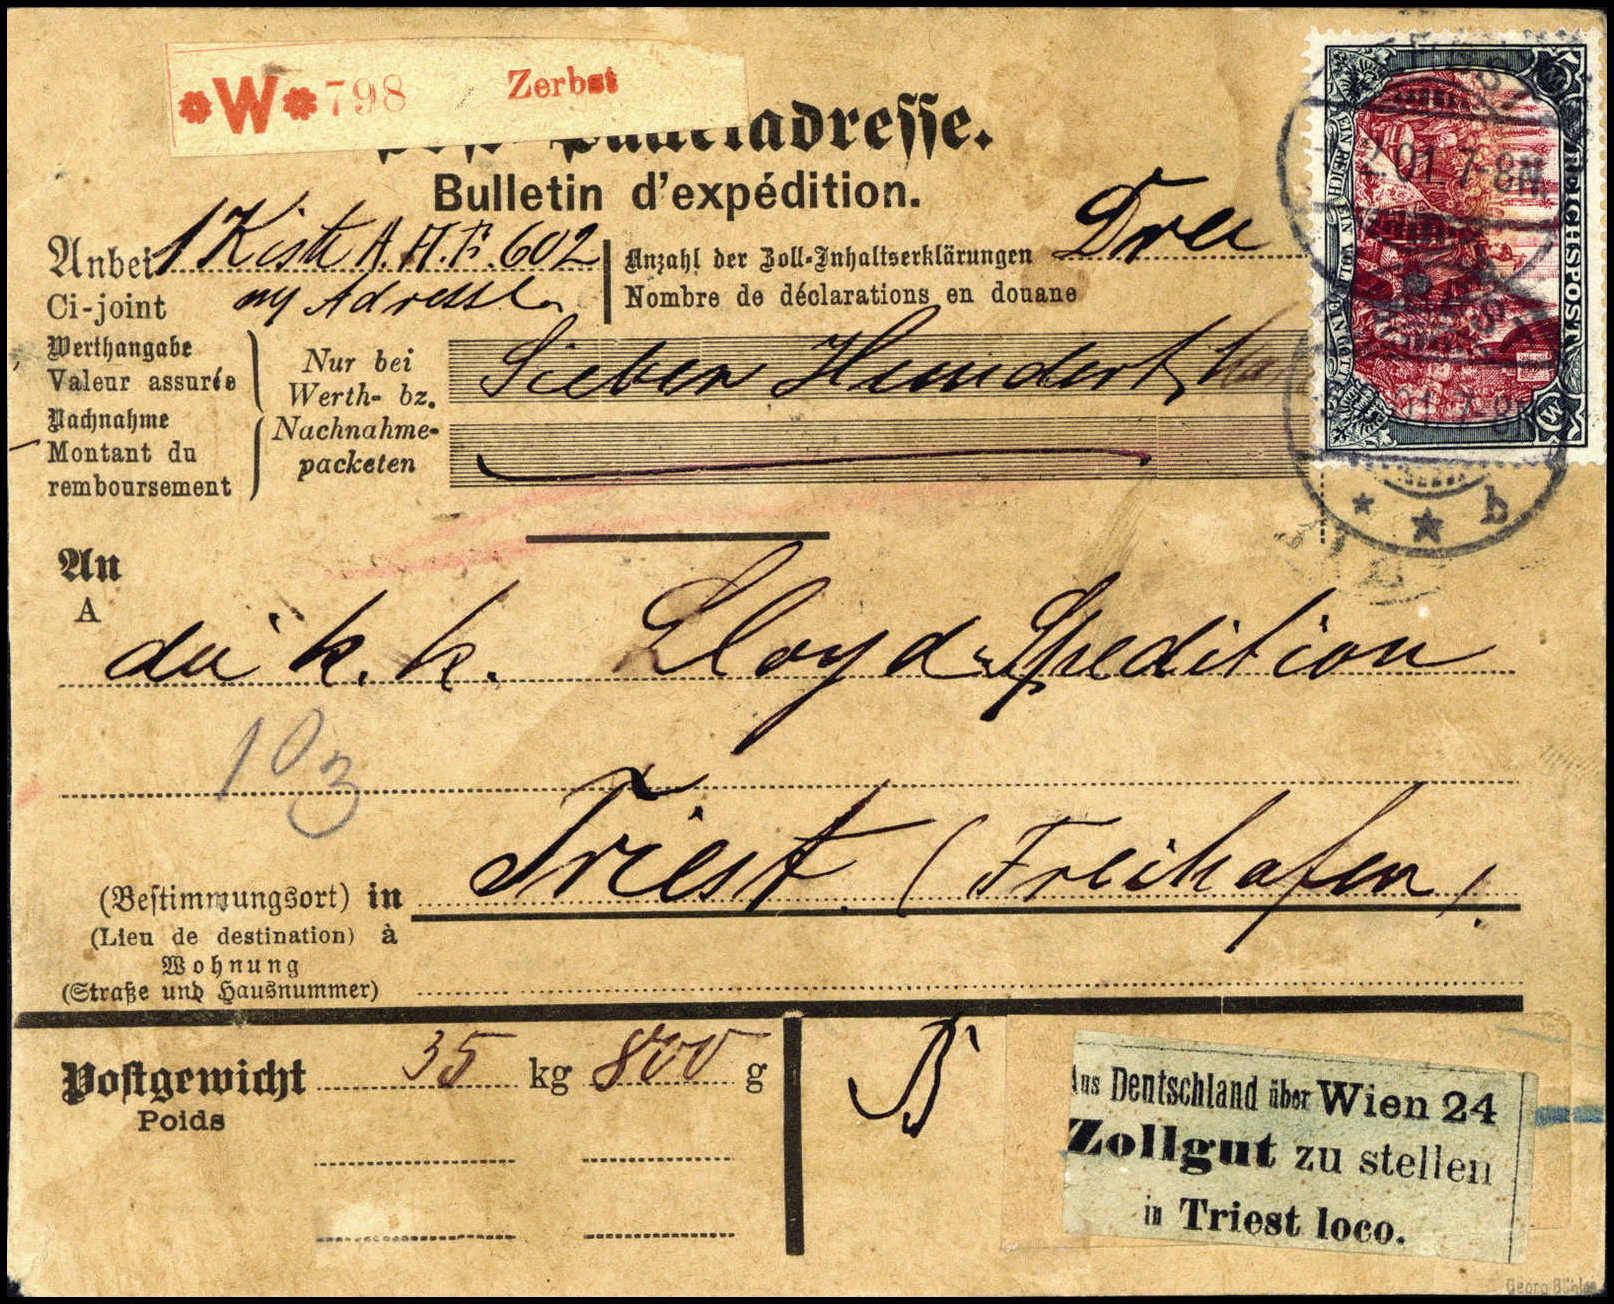 *W*798 Zerbst
Post-Packetadresse.
Bulletin d'expédition.
Anbei 1 Kiste A.H.F. 602
Ci-joint
Adresse
Anzahl der Zoll-Inhaltserklärungen Drei
Nombre de déclarations en douane
Werthangabe
Valeur assurée
Nachnahme
Montant du
remboursement
Nur bei
Werth- bz.
Nachnahme-
packeten
Sieben Hundert
REICHSPOST
01 7-8N
01 7-8N
* * b
An
A
die k. k. Lloyd-Spedition
103
Triest (Freihafen).
(Bestimmungsort) in
(Lieu de destination) à
Wohnung
(Straße und Hausnummer)
Postgewicht 35 kg 800 g
Poids
Aus Deutschland über Wien 24
Zollgut zu stellen
in Triest loco.
Georg Bühler